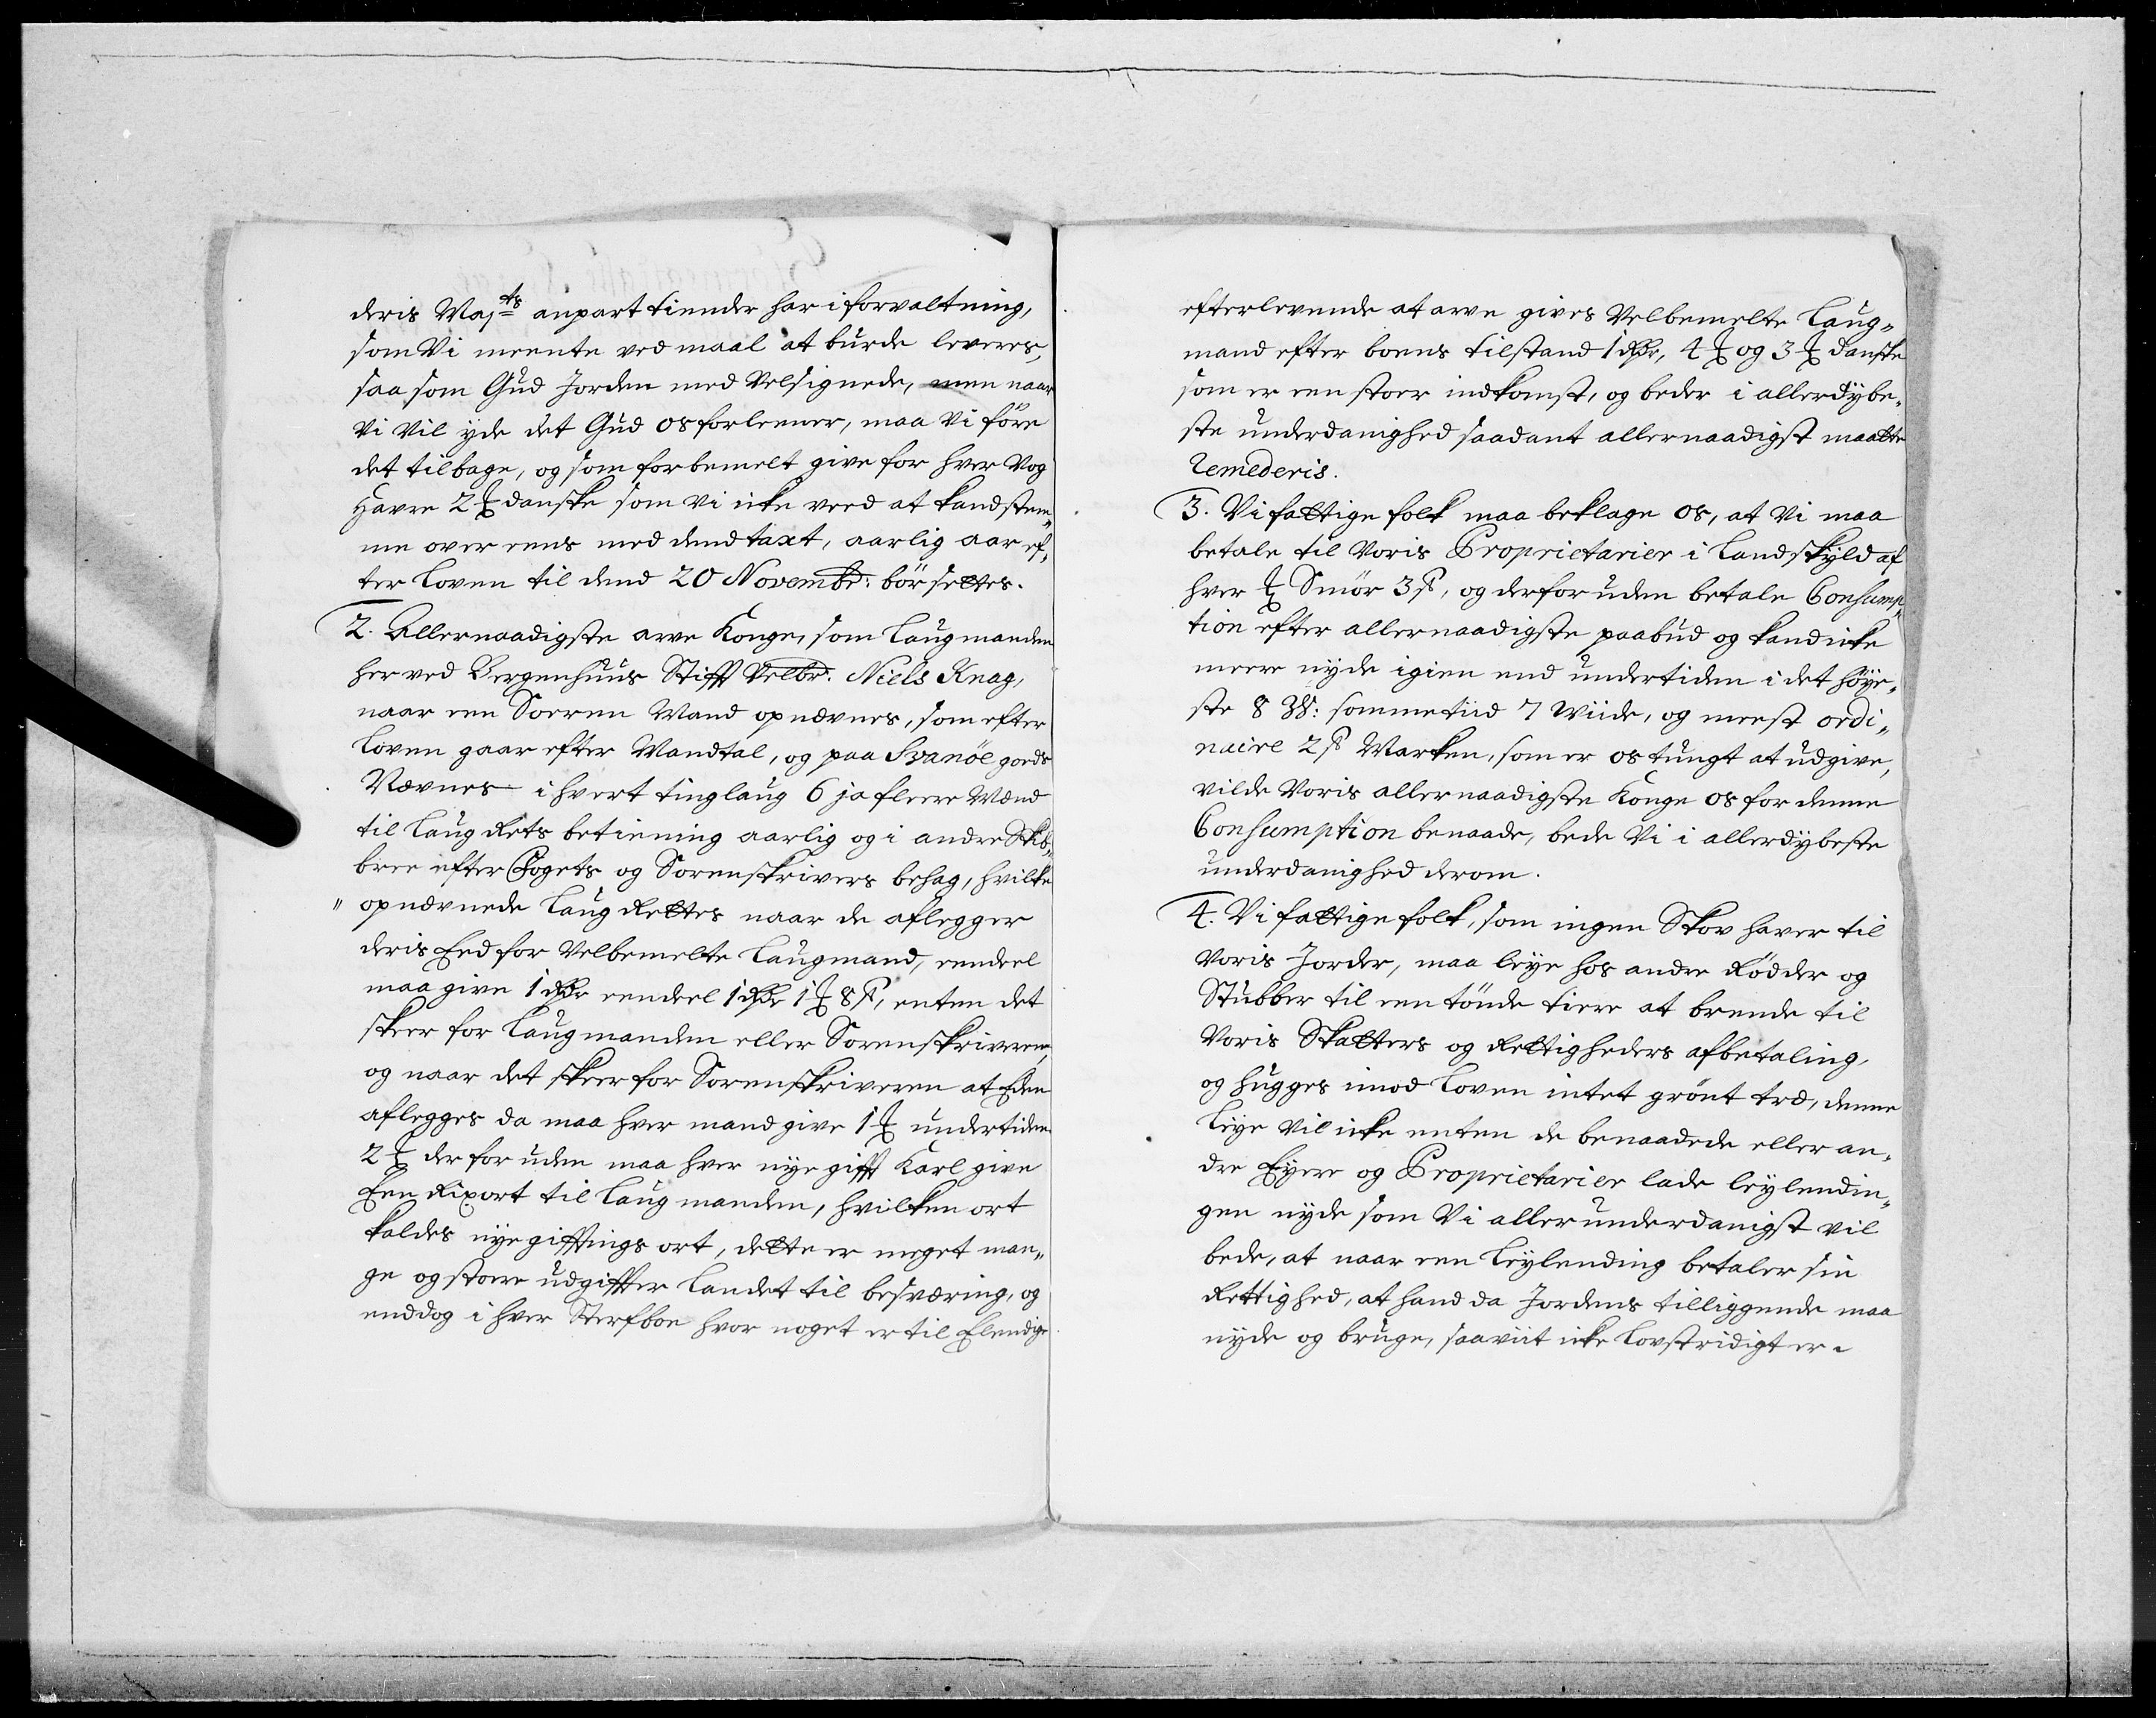 deris Maj<sup>ts</sup> anpart tiender har i forvaltning,
som Vi meente ved maal at burde leveres,
saa som Gud Jorden med Velsignede, men naar
Vi Vil ÿde det Gud os forleener, maa Vi före
det tilbage, og som forbemelt give for hver Vog
Havre 2 ₻ danske som Vi icke veed at kand stem„
me over eens med dend taxt, aarlig aar ef„
ter Loven til dend 20 Novembr: bör settes.
2. Allernaadigste arve Konge, som Laugmanden
her ved Bergenhuus Stifft Velbr. Niels Knag,
naar een Soeren Mand opnævnes, som efter
Loven gaar efter Mandtal, og paa Svanöe gods
Nævnes i hvert tinglaug 6 ja fleere Mænd
til Laug Rets betiening aarlig og i andre Skib„
bree efter Fogets og Sorenskrivers behag, hvilke
„ opnævnede Laug Rettes naar de aflegger
deris Eed for Velbemelte Laugmand, eendeel
maa give 1 Rdr eendeel 1 Rdr 1 ₻ 8 ß, enten det
skeer for Laugmanden eller Sorenskriveren,
og naar det skeer for Sorenskriveren at Eden
aflegges da maa hver mand give 1 ₻ undertiden
2 ₻ der for uden maa hver nÿe gifft Karl give
Een Rixort til Laugmanden, hvilken ort
kaldes nÿe gifftings ort, dette er meget man„
ge og store udgiffter Landet til besværing, og
enddog i hver Sterfboe hvor noget er til Elendige
efterlevende at arve gives Velbemelte Laug„
mand efter boens tilstand 1 Rdr, 4 ₻ og 3 ₻ danske
som er een stoer indkomst, og beder i allerdÿbe„
ste underdanighed saadant allernaadigst maatte
remederis.
3. Vi fattige folk maa beklage os, at Vi maa
betale til Voris Proprietarier i Landskÿld af
hver ₻ Smör 3 ß, og derforuden betale Consump„
tion efter allernaadigste paabud og kand icke
meere nÿde igien end undertiden i det höÿe„
ste 8 ß: sommetiid 7 Wiide, og meest ordi„
naire 2 ß Marken, som er os tungt at udgive,
vilde Voris allernaadigste Konge os for denne
Consumption benaade, bede Vi i allerdÿbeste
underdanighed derom.
4. Vi fattige folk, som ingen Skov haver til
Voris Jorder, maa leÿe hos andre Rödder og
Stubber til een tönde tiere at brende til
Voris Skatters og Rettigheders afbetaling,
og hugges imod Loven intet grönt træ, denne
Leÿe Vil icke enten de benaadede eller an„
dre Eÿere og Proprietarier lade leÿlendin„
gen nÿde som Vi allerunderdanigst vil
bede, at naar een Leÿlending betaler sin
Rettighed, at hand da Jordens tilliggende maa
nÿde og bruge, saaviit icke Lovstridigt er.